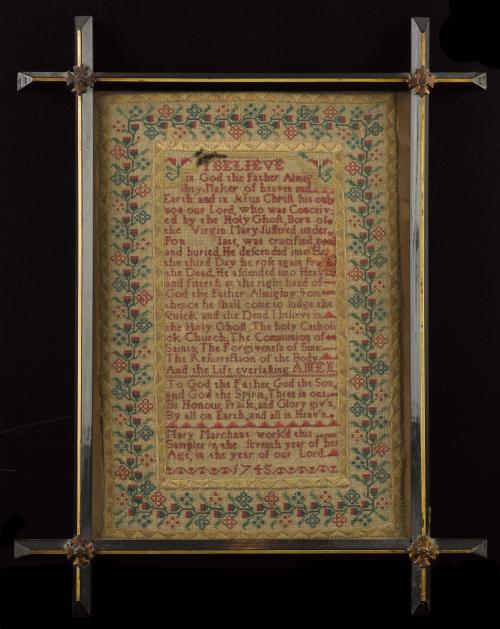 I BELIEVE
in God the Father Almig
hty, Maker of heaven and
Earth, and in Jesus Christ his only
son our Lord, who was Conceiv
ed by the Holy Ghost, Born of
the Virgin Mary, suffered under
Pon late, was crucified
and buried, He descended into He
the third Day he rose again
the Dead, He ascended into Heav
and sitteth at the right hand of
God the Father Almighty, from
thence he shall come to Judge the
Quick and the Dead, I believe in
the Holy Ghost, The holy Catholi
ck Church, The Communion of
Saints, The Forgiveness of Sins
The Resurrection of the Body
And the Life everlasting, AMEN
To God the Father, God the Son,
and God the Spirit, Three in one,
Be Honour, Praise, and Glory giv'n,
By all on Earth, and all in Heav'n.
Mary Marchant work'd this
Sampler in the seventh year of her
Age, in the year of our Lord
1745